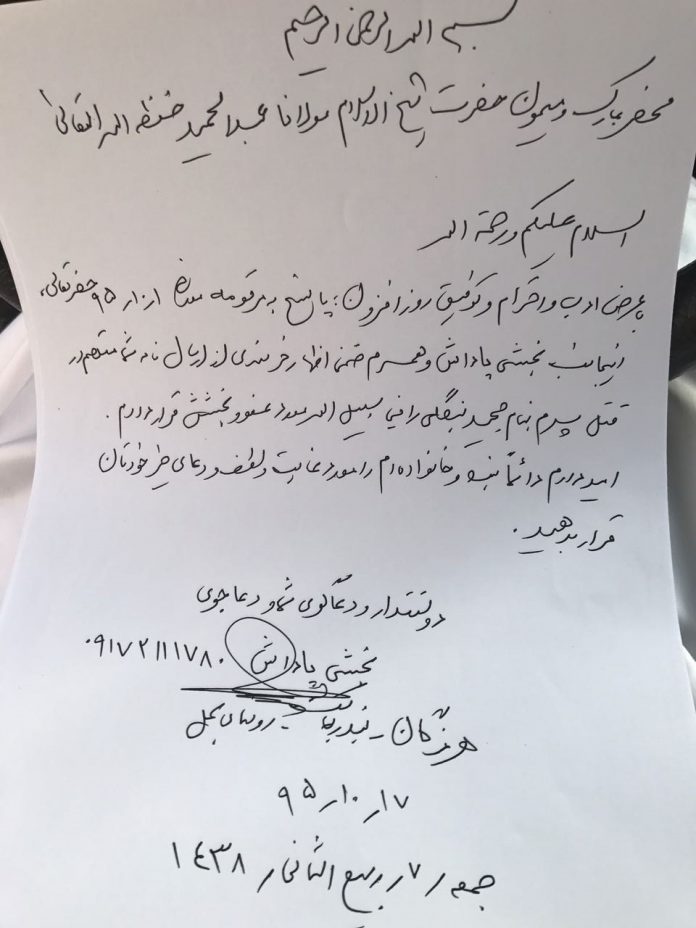 بسم الله الرحمن الرحیم
محضر مبارک و میمون حضرت شیخ الاسلام مولانا عبدالحمید حفظه الله تعالی
السلام علیکم ورحمة الله
با عرض ادب و احترام و توفیق روز افزون؛ پاسخ به مرقومه مورخ ۹۵ حضرتعالی،
اینجانب بخشی پاداش و همسرم ضمن اظهار خرسندی از ارسال نامه شما متهم در
قتل پسرم بنام را فی سبیل الله مورد عفو و بخشش قرار دادم.
امیدوارم دائماً بنده و خانواده‌ام را مورد عنایت و لطف و دعای خیر خودتان
قرار بدهید.
دوستدار و دعاگوی شما و دعاجوی
بخشی پاداش ۰۹۱۷۲۱۱۱۷۸۰
هرمزگان - - روستای
۱۷ر۱۰ر۹۵
جمعه ر ۷ر ربیع الثانی ر ۱٤۳۸